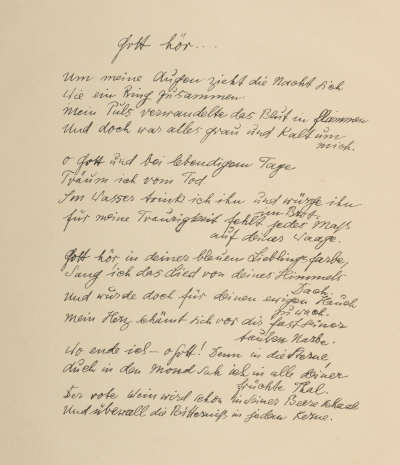 Gott hör ....
Um meine Augen zieht die Nacht sich
Wie ein Ring zusammen.
Mein Puls verwandelte das Blut in Flammen
Und doch war alles grau und kalt um
mich.
O Gott und bei lebendigem Tage
Träum ich vom Tod.
Im Wasser trink ich ihn und würge ihn
im Brot.
Für meine Traurigkeit fehlt jedes Maß
auf deiner Waage.
Gott hör in deiner blauen Lieblingsfarbe,
Sang ich das Lied von deines Himmels
Dach.
Und wurde doch für deinen ewigen Hauch
zu wach.
Mein Herz schämt sich vor dir fast seiner
tauben Narbe.
Wo ende ich – o Gott! Denn in die Sterne,
Auch in den Mond sah ich, in alle deiner
Früchte Thal.
Der rote Wein wird schon in seiner Beere schaal
Und überall die Bitterniß in jedem Kerne.